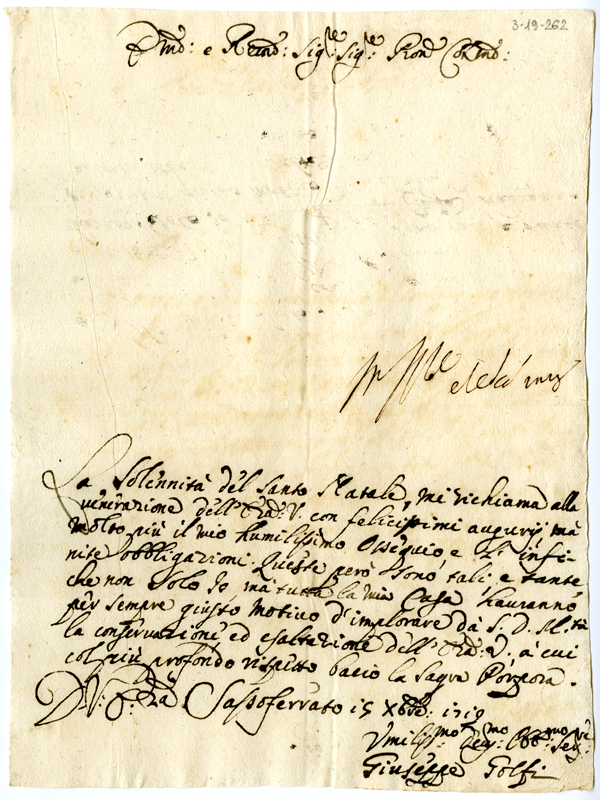 3-19-262
Em̃o: e Reverendmo: Sigre: Sigre: Pron̄e Colmo:
La Solennità del Santo Natale, mi richiama alla
venerazione dell'Em̃a: V. con felicissimi augurij mà
molto più il mio humilissimo Ossequio e l'infi-
nite obbligazioni. Queste però sono tali, e tante
che non solo Io, mà tutta la mia Casa, hauranno
per sempre giusto motivo d'implorare da S. D. M.tà
la conservazione, ed esaltazione dell'Em̃a: V. à cui
col più profondo rispetto bacio la Sagra Porpora.
D. V. Em̃a. Sassoferrato 15 Xbre: 1719
Umilissmo Devmo Obbmo Serve
Giuseppe Golfi